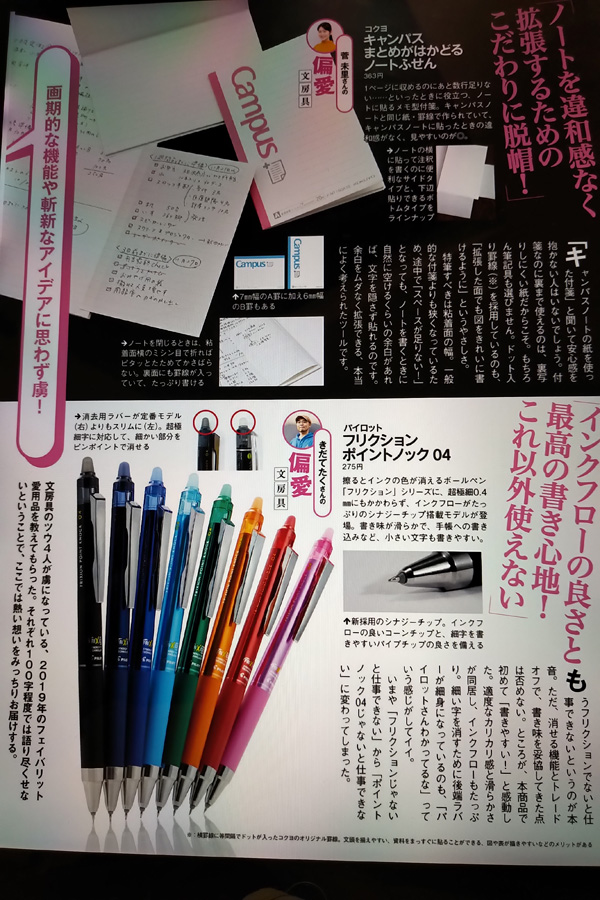 「ノートを違和感なく
拡張するための
こだわりに脱帽！」
コクヨ
キャンパス
まとめがはかどる
ノートふせん
363円
1ページに収めるのにあと数行足りな
い……といったときに役立つ、ノー
トに貼るメモ型付箋。キャンパスノ
ートと同じ紙・罫線で作られていて、
キャンパスノートに貼ったときの違
和感がなく、見やすいのが◎。
菅 未里さんの
偏愛
文房具
Campus
→ノートの横
に貼って注釈
を書くのに便
利なサイドタ
イプと、下辺
貼りできるボ
トムタイプを
ラインナップ
「キャンパスノートの紙を使っ
た付箋」と聞いて安心感を
抱かない人はいないでしょう。付
箋なのに裏まで使えるのは、裏写
りしにくい紙だからこそ。もちろ
ん筆記具も選びません。ドット入
り罫線（※）を採用しているのも、
「拡張した面でも図をきれいに書
けるように」というやさしさ。
特筆すべきは粘着面の幅。一般
的な付箋よりも狭くなっているた
め、途中で「スペースが足りない！」
となっても、ノートを書くときに
自然に空けるくらいの余白があれ
ば、文字を隠さず貼れるのです。
余白をムダなく拡張できる、本当
によく考えられたツールです。
Campus
Campus
↑7mm幅のA罫に加え6mm幅
のB罫もある
→ノートを閉じるときは、粘
着面横のミシン目で折れば
ピタッとたためてかさばら
ない。裏面にも罫線が入っ
ていて、たっぷり書ける
画期的な機能や斬新なアイデアに思わず虜！
「インクフローの良さと
最高の書き心地！
これ以外使えない」
パイロット
フリクション
ポイントノック 04
275円
擦るとインクの色が消えるボールペン
「フリクション」シリーズに、超極細0.4
mmにもかかわらず、インクフローがたっ
ぷりのシナジーチップ搭載モデルが登
場。書き味が滑らかで、手帳への書き
込みなど、小さい文字も書きやすい。
きだてたくさんの
偏愛
文房具
→消去用ラバーが定番モデル
（右）よりもスリムに（左）。超極
細字に対応して、細かい部分を
ピンポイントで消せる
↑新採用のシナジーチップ。インクフ
ローの良いコーンチップと、細字を書
きやすいパイプチップの良さを備える
もうフリクションでないと仕
事できないというのが本
音。ただ、消せる機能とトレード
オフで、書き味を妥協してきた点
は否めない。ところが、本商品で
初めて「書きやすい！」と感動し
た。適度なカリカリ感と滑らかさ
が同居し、インクフローもたっぷ
り。細い字を消すために後端ラバ
ーが細身になっているのも、「パ
イロットさんわかってるな」って
いう感じがしてイイ。
いまや「フリクションじゃない
と仕事できない」から「ポイント
ノック04じゃないと仕事できな
い」に変わってしまった。
文房具のツウ4人が虜になっている、2019年のフェイバリット
愛用品を教えてもらった。それぞれ100字程度では語り尽くせな
いということで、ここでは熱い想いをみっちりお届けする。
※：横罫線に等間隔でドットが入ったコクヨのオリジナル罫線。文頭を揃えやすい、資料をまっすぐに貼ることができる、図や表が描きやすいなどのメリットがある